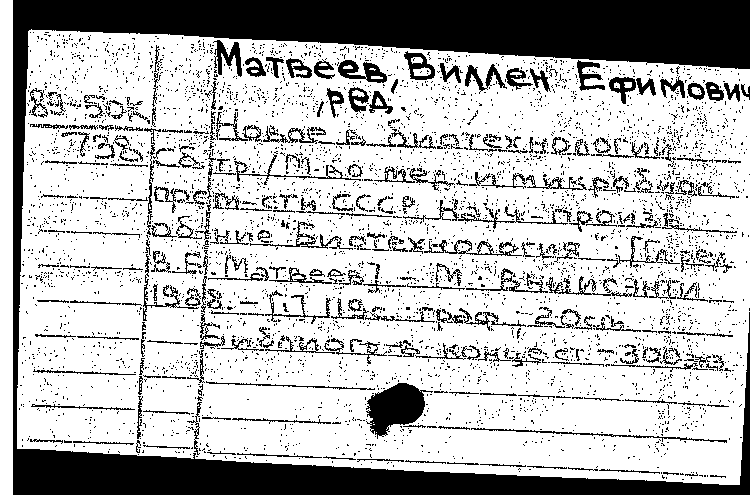 Матвеев, Виллен Ефимович
, ред.
89-50К
Новое в биотехнологии
738
Сб. тр. / М-во мед. и микробиол.
пром-сти СССР, Науч.-произв.
об-ние "Биотехнология"; [Гл. ред.
В.Е. Матвеев] - М.: ВНИИСЭНТИ
1988. - [1], 119 с.: граф.; 20 см
Библиогр. в конце ст. - 300 экз.